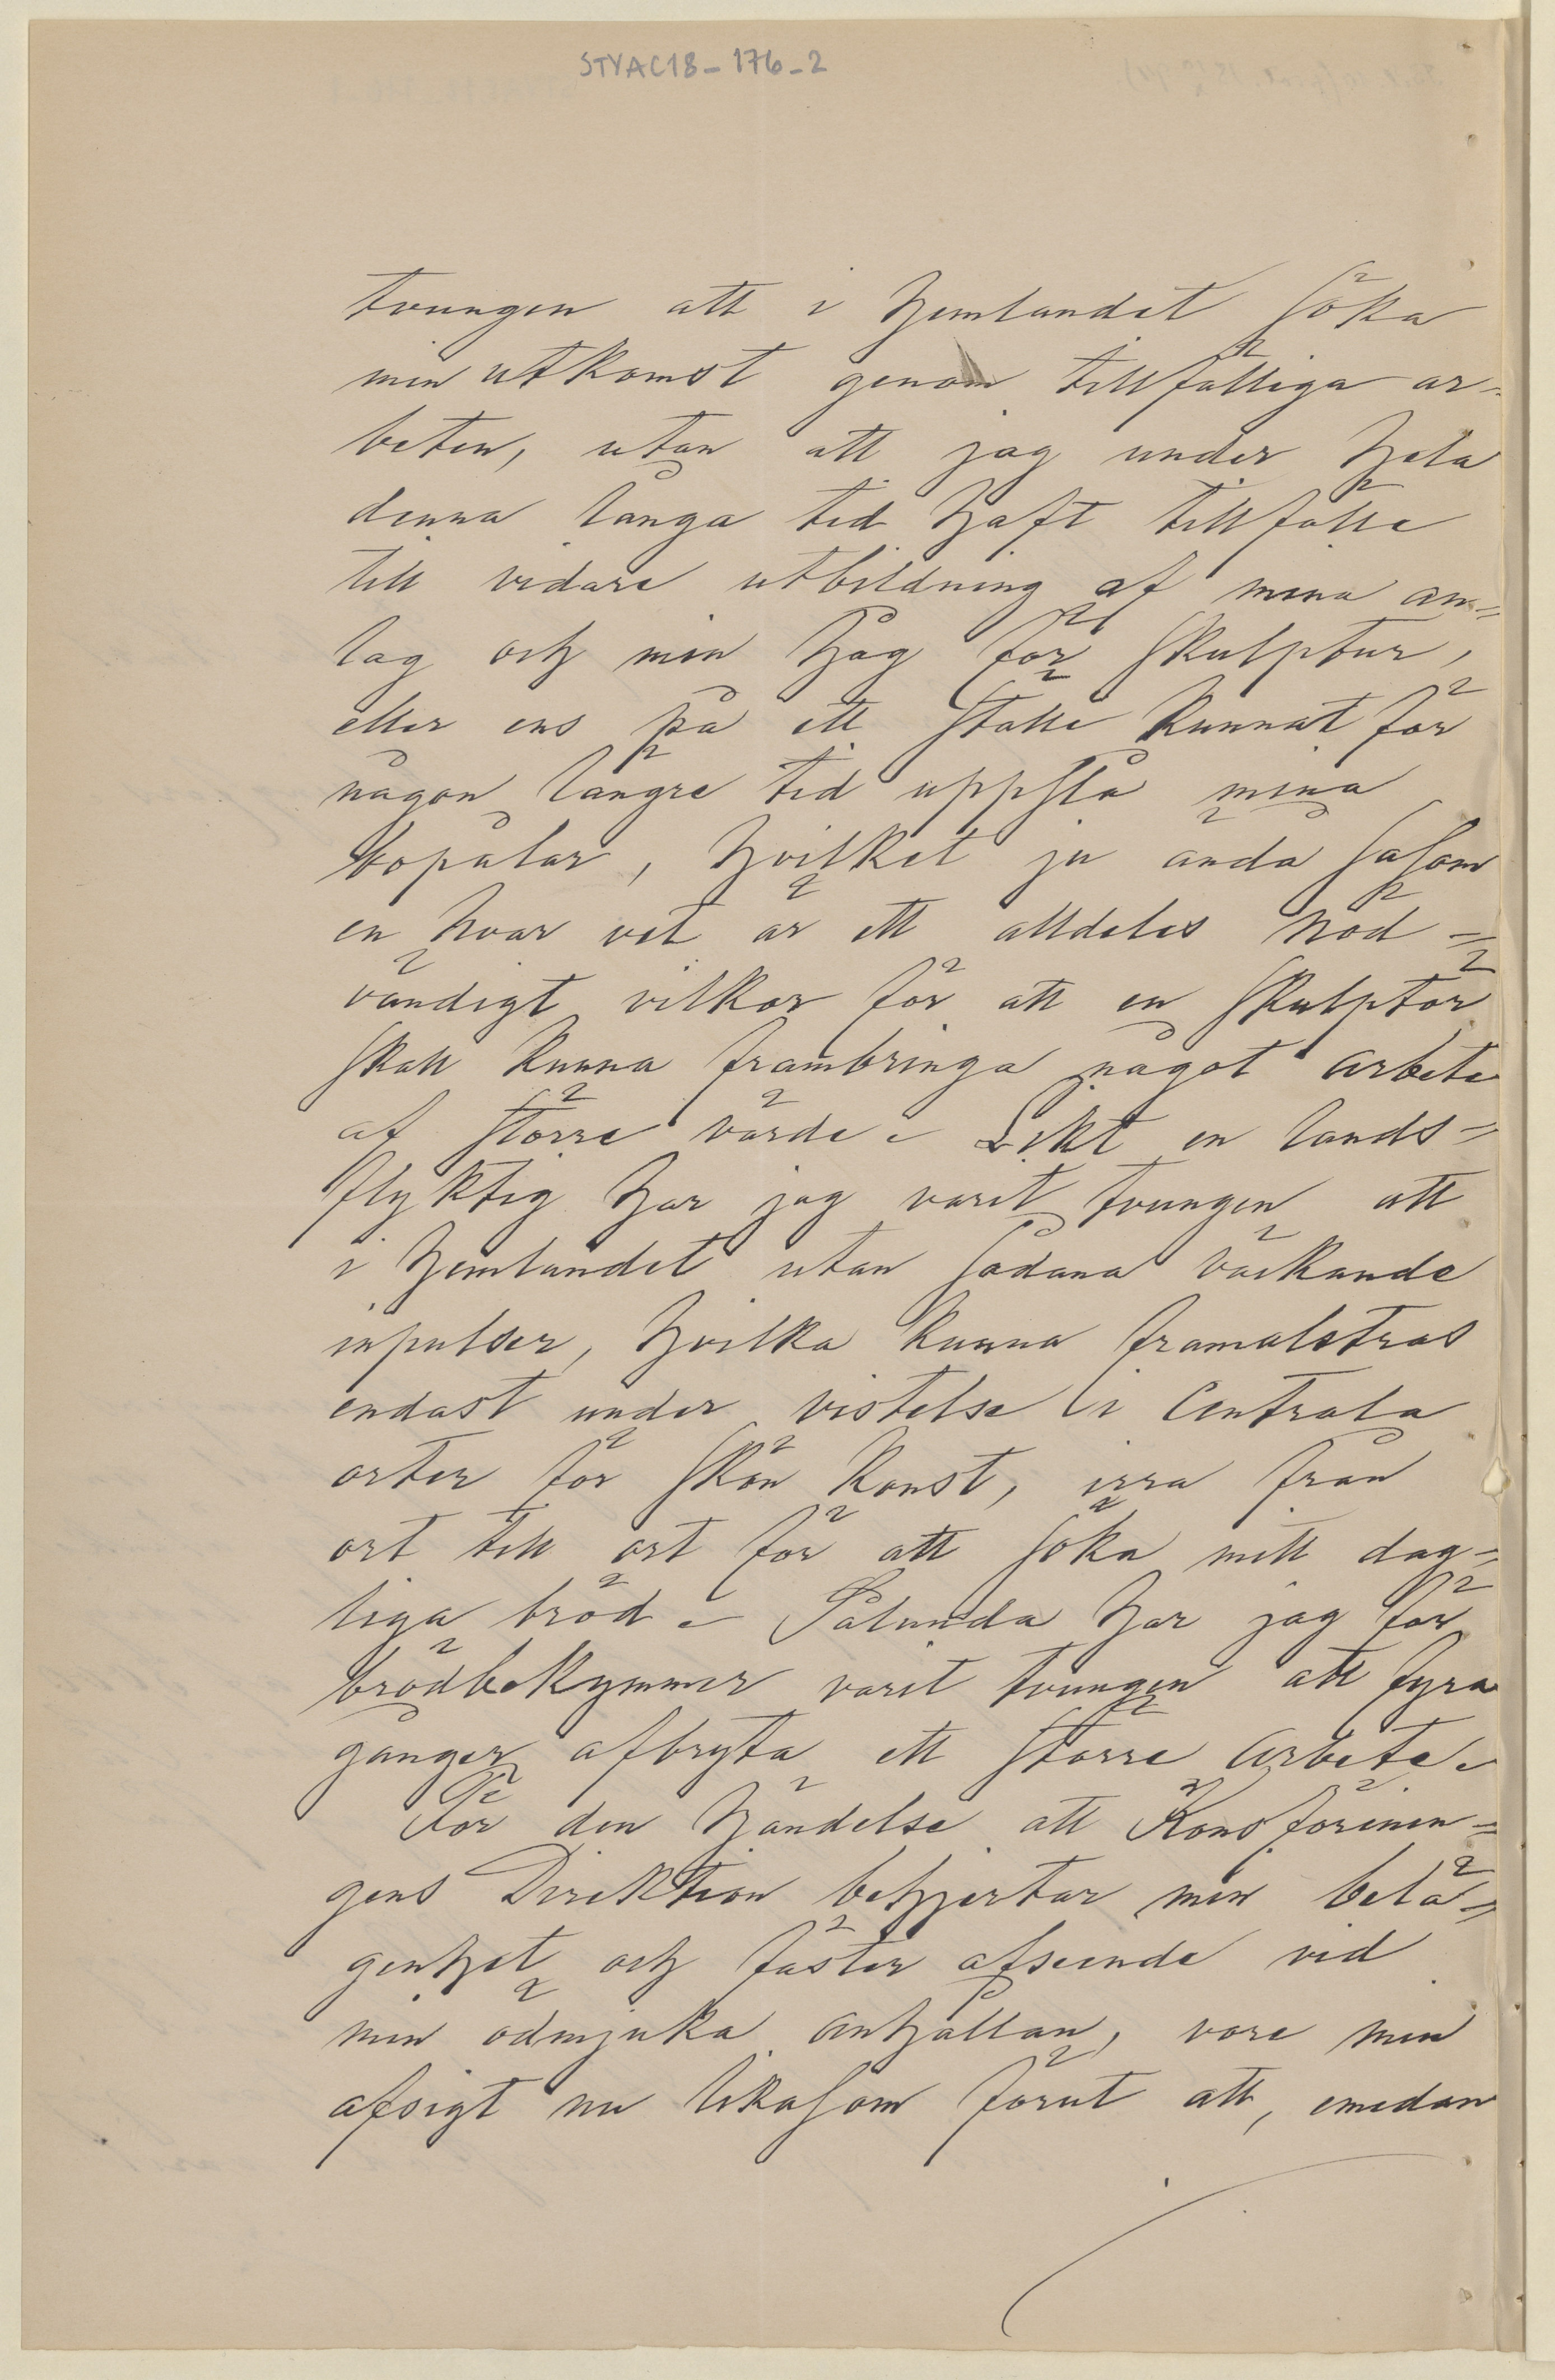 STYAC18-176-2
tvungen att i hemlandet söka
min utkomst genom tillfälliga ar-
beten, utan att jag under hela
denna långa tid haft tillfälle
till vidare utbildning af mina an=
lag och min håg för skulptur,
eller ens på ett ställe kunnat för
någon längre tid uppslå mina
bopålar, hvilket ju ändå såsom
en hvar vet är ett alldeles nöd=
vändigt vilkor för att en skulptör
skall kunna frambringa något arbete
af större värde. Likt en lands=
flyktig har jag varit tvungen att
i hemlandet utan sådana väckande
inpulser, hvilka kunna framalstras
endast under vistelse i Centrala
orter för skön konst, irra från
ort till ort för att söka mitt dag=
liga bröd. Sålunda har jag för
brödbekymmer varit tvungen att fyra
gånger afbryta ett större arbete.
För den händelse att Konsförenin=
gens Direktion behjertar min belä=
genhet och fäster afseende vid
min ödmjuka anhållan, vore min
afsigt nu likasom förut att, emedan